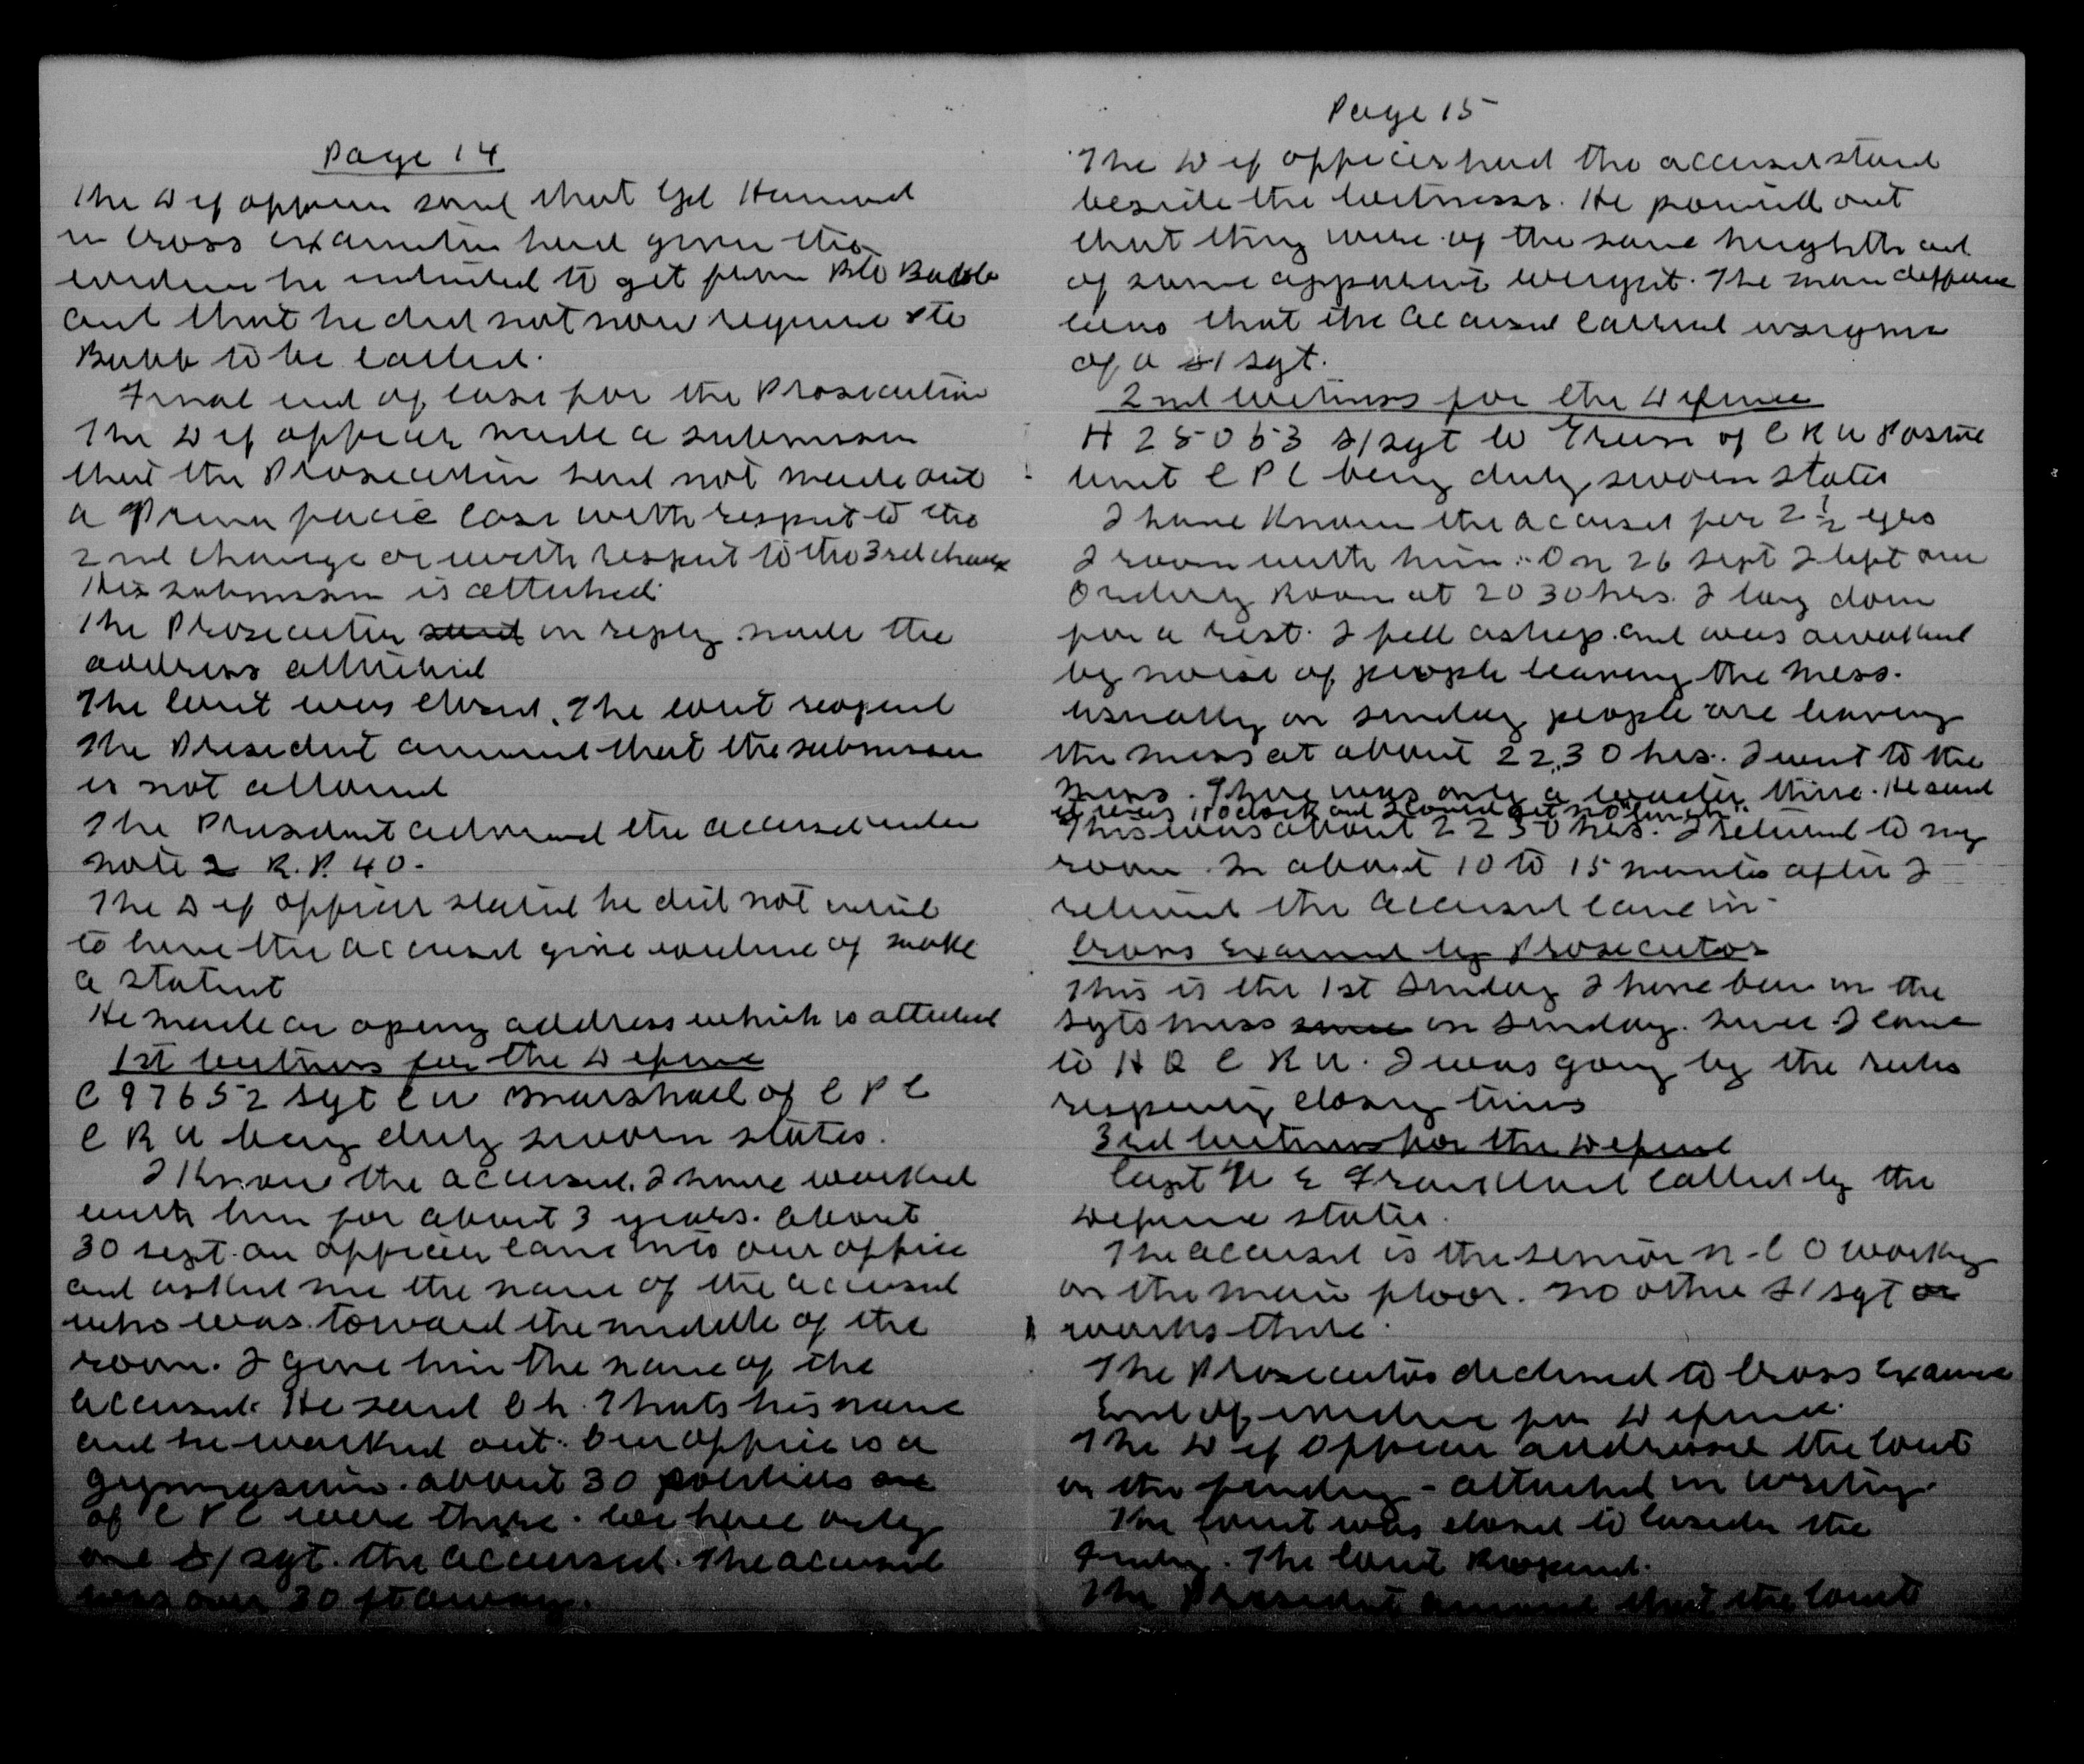 Page 14
The Def officer said that Sgt Hammond
in cross examination had given the
evidence he intended to get from Pte Bubb
and that he did not now require Pte
Bubb to be called.
Final end of case for the Prosecution
The Def officer made a submission
that the Prosecution had not made out
a Prima facie case with respect to the
2nd charge or with respect to the 3rd charge
His submission is attached
The Prosecution said in reply made the
address attached
The Court was closed. The court reopened
The President announced that the submission
is not allowed
The President advised the accused under
note 2 R.P. 40.
The Def officer stated he did not intend
to have the accused give evidence or make
a statement
He made an opening address which is attached
1st witness for the Defence
C 97652 Sgt C W Marshall of C P C
C R U being duly sworn states.
I know the accused. I have worked
with him for about 3 years. About
30 Sept. an officer came into our office
and asked me the name of the accused
who was toward the middle of the
room. I gave him the name of the
accused. He said Oh. Thats his name
and he walked out. Our office is a
gymnasium. about 30 soldiers are
of C P C were there. We have only
one S/Sgt. the accused. The accused
was over 30 ft away.
Page 15
The Def officer had the accused stand
beside the witness. He pointed out
that they were of the same heighth and
of same apparent weight. The main difference
being that the accused carried insignia
of a S/Sgt.
2nd witness for the Defence
H 25053 S/Sgt W of C R U Postal
Unit C P C being duly sworn states
I have known the accused for 2½ yrs
I room with him. On 26 Sept I left our
Orderly Room at 2030 hrs. I lay down
for a rest. I fell asleep and was awakened
by noise of people leaving the mess.
Usually on Sunday people are leaving
the mess at about 22.30 hrs. I went to the
mess. There was only a waiter there. He said
it was 11 oclock and I could get no lunch.
This was about 2250 hrs. I returned to my
room. In about 10 to 15 minutes after I
returned the accused came in.
Cross Examined by Prosecutor
This is the 1st Sunday I have been in the
Sgts mess since on Sunday. Since I came
to H Q C R U. I was going by the rules
respecting closing times
3rd witness for the Defence
Capt N E called by the
Defence states.
The accused is the senior N.C.O working
on the main floor. No other S/Sgt or
works there.
The Prosecutor declined to Cross Examine
End of evidence for Defence.
The Def Officer addressed the Court
on the finding - attached in writing.
The Court was closed to consider the
finding. The Court Reopened.
The President announced that the Court